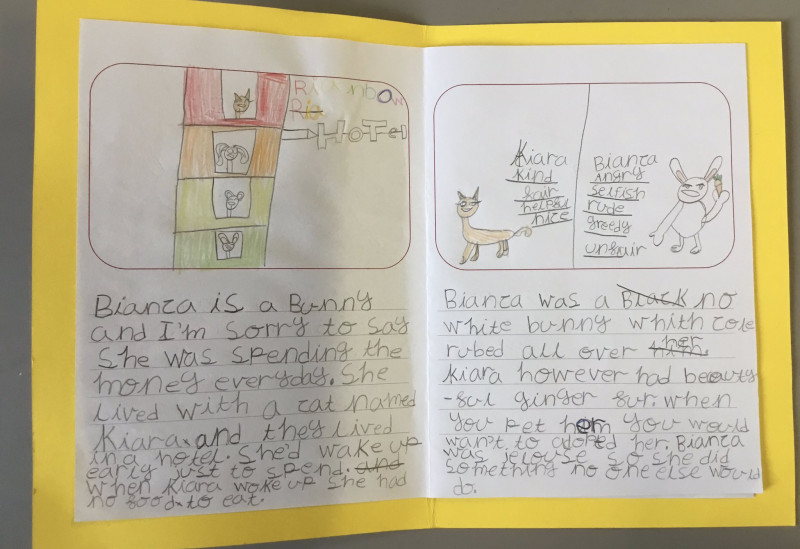 Rainbow
Ria
HoTel
Bianca is a Bunny
and I'm sorry to say
She was spending the
money everyday. She
lived with a cat named
Kiara. and they lived
in a hotel. She'd wake up
early just to spend. and
when Kiara woke up she had
no food to eat.
Kiara
kind
fair
helpful
nice
Bianca
Angry
Selfish
rude
greedy
unfair
Bianca was a Black no
white bunny whith cole
rubed all over him. her
Kiara however had beauty
-ful ginger fur. when
you pet her you would
want to adopted her. Bianca
was jelouse so she did
something no one else would
do.